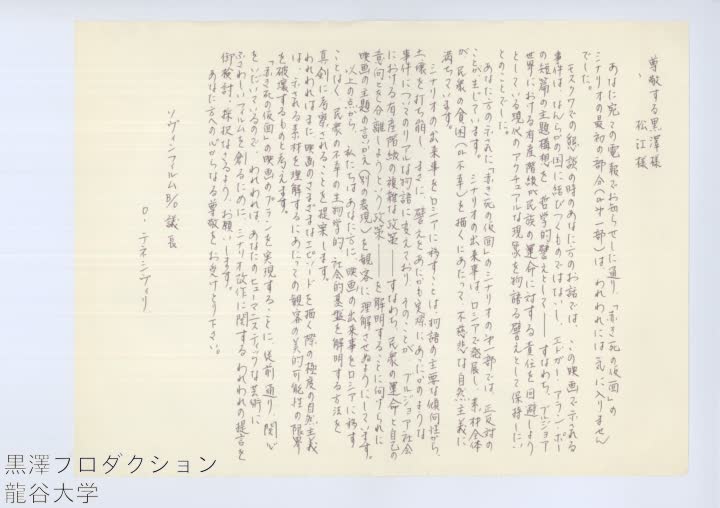 尊敬する黒澤様
松江様
あなた宛ての電報でお知らせした通り、「赤き死の仮面」の
シナリオの最初の部分（第一部）は、われわれには気に入りません
でした。
モスクワでの懇談の時のあなた方のお話では、この映画で示される
事件は、なんらかの国に結びつくものではなし、エドガー・アラン・ポー
の短篇の主題構想を、哲学的譬えとして――すなわち、ブルジョア
世界における有産階級が民族の運命に対する責任を回避しよう
としている現代のアクチュアルな現象を物語る譬えとして保持したい
とのことでした。
あなた方の示された「赤き死の仮面」のシナリオの第一部では、正反対の
ことが生じています。シナリオの出来事は、ロシアで発展し、素材全体
が、民衆の貧困（と不幸）を描くにあたって、不慈悲な自然主義に
満ちています。
シナリオの出来事をロシアに移すことは、物語の主要な傾向性から、
土壌を打ち崩し、すでに譬えを、あたかも実際にあったかのような
事件についてのリアルな物語に変えており、そのことが、ブルジョア社会
における有産階級の複雑な政策――すなわち、民衆の運命と自己の
意向とを分離しようという政策――を解明することに向けられた
映画の主題の言いかえ（別の表現）を観客に理解させぬようにしています。
以上の点から、私たちは、あなた方に、映画の出来事をロシアに移す
ことなく、民衆の不幸の生物学的、社会的基盤を解明する方法を
真剣に考察されることを提案します。
われわれはまた、映画のさまざまなエピソードを描く際の極度の自然主義
は、示される素材を理解するにあたっての観客の美的可能性の限界
を破壊するものと考えます。
「赤き死の仮面」の映画のプランを実現することに、従前通り、関心
をいだいているので、われわれは、あなたのヒューマニスティックな芸術に
ふさわしいフィルムを創るために、シナリオ改作に関するわれわれの提言を
御検討、採択なさるよう、お願いします。
あなた方への心からなる尊敬をお受けとり下さい。
ソヴィンフィルム 議長
O・テネイシヴィリ
黒澤プロダクション
龍谷大学